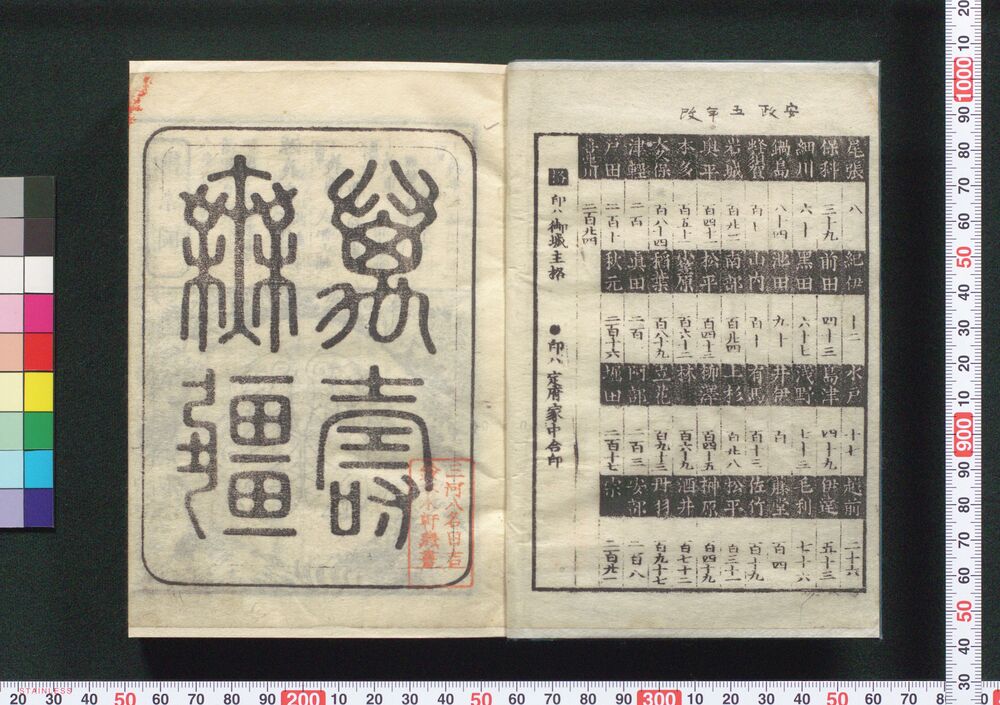 安政五年改
尾張 八 紀伊 十二 水戸 十七 越前 二十六
保科 三十九 前田 四十三 島津 四十九 伊達 五十三
細川 六十 黒田 六十七 浅野 七十三 毛利 七十六
鍋島 八十四 池田 九十 井伊 百 藤堂 百四
蜂須賀 百十 山内 百十 有馬 百十三 佐竹 百十九
岩城 百廿一 南部 百廿四 上杉 百廿八 松平 百三十一
奥平 百四十一 松平 百四十三 柳澤 百四十五 榊原 百四十九
本多 百五十一 小笠原 百六十二 林 百六十九 酒井 百七十二
大久保 百八十四 稲葉 百八十九 立花 百九十三 丹羽 百九十七
津軽 二百 真田 二百 阿部 二百三 安部 二百八
戸田 二百十 秋元 二百十六 堀田 二百十七 宗 二百廿一
喜連川 二百廿四
印ハ御城主招 ●印ハ定府家中合印
萬壽
無疆
三河八名田吉